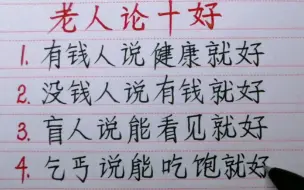 老人论十好
1. 有钱人说健康就好
2. 没钱人说有钱就好
3. 盲人说能看见就好
4. 乞丐说能吃饱就好